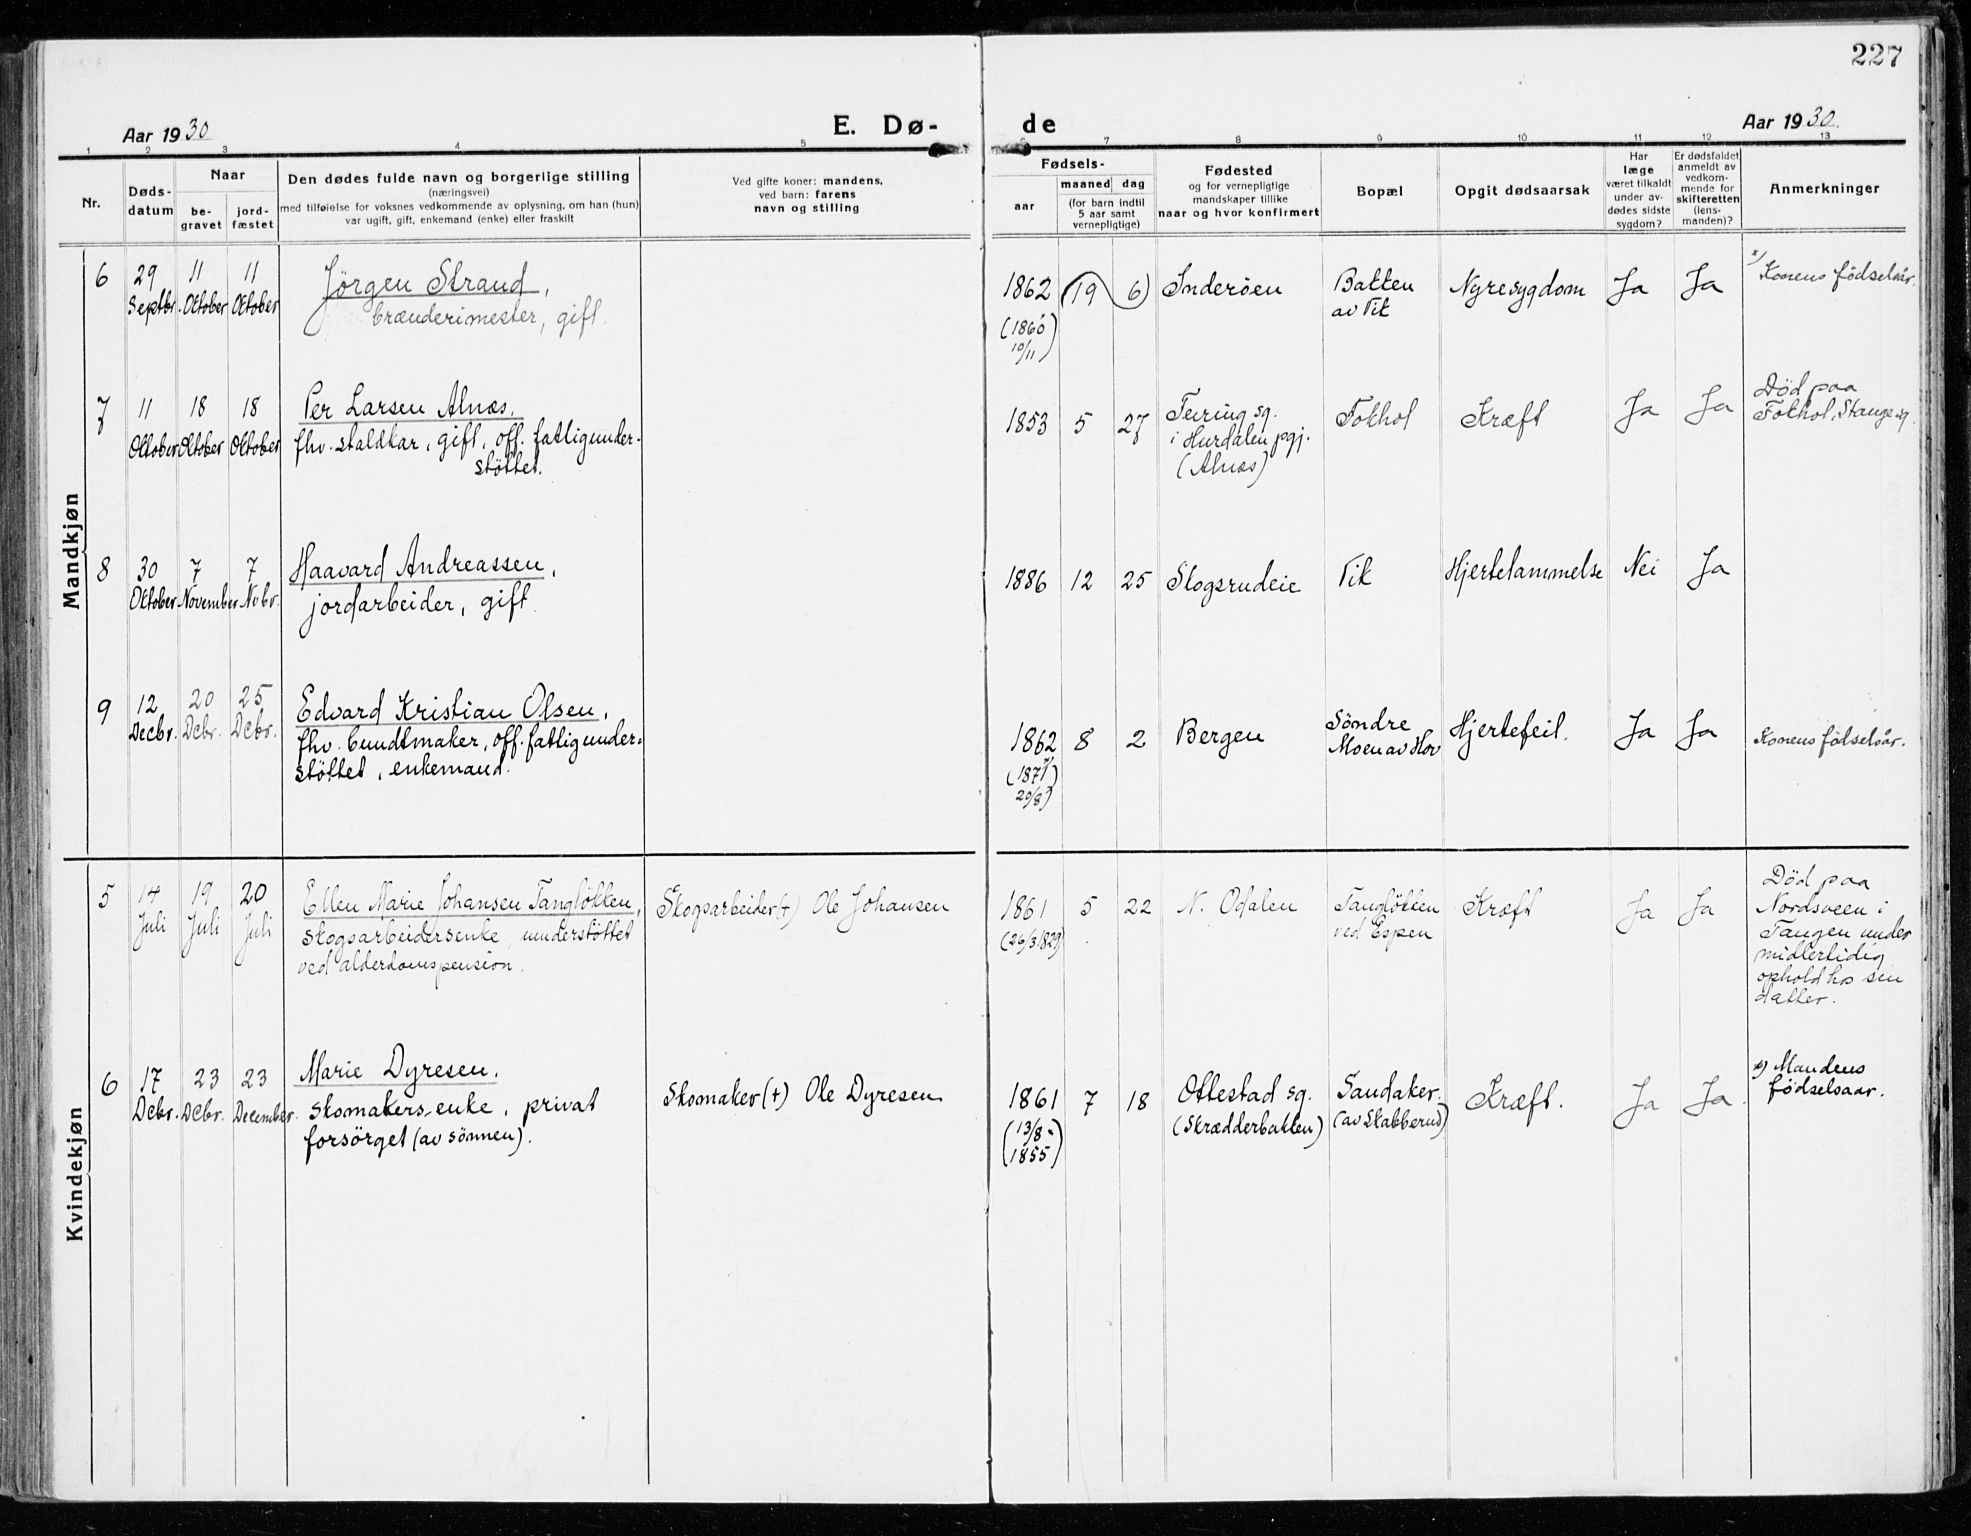 227
Aar 1930
E. Dø-
de
Aar 1930.
1 2 3 4 5 6 7 8 9 10 11 12 13
Nr.
Døds-
datum
Naar
be-
gravet
jord-
fæstet
Den dødes fulde navn og borgerlige stilling
(næringsvei)
med tilføielse for voksnes vedkommende av oplysning, om han (hun)
var ugift, gift, enkemand (enke) eller fraskilt
Ved gifte koner: mandens,
ved barn: farens
navn og stilling
Fødsels-
aar
maaned dag
(for barn indtil
5 aar samt
vernepligtige)
Fødested
og for vernepligtige
mandskaper tillike
naar og hvor konfirmert
Bopæl
Opgit dødsaarsak
Har
læge
været tilkaldt
under av-
dødes sidste
sygdom?
Er dødsfaldet
anmeldt av
vedkom-
mende for
skifteretten
(lens-
manden)?
Anmerkninger
Mandkjøn
6
29
Septbr.
11
Oktober
11
Oktober
Jörgen Strand,
brænderimester, gift.
1862 (19 6)
(1860
10/11)
Inderöen
Bakken
av Vik
Nyresygdom
Ja
Ja
x) Konens födselsår.
7
11
Oktober
18
Oktober
18
Oktober
Per Larsen Alnæs,
fhv. staldkar, gift, off. fattigunder-
støttet.
1853 5 27
Feiring sg.
i Hurdalen pgj.
(Alnæs)
Fokhol
Kræft
Ja
Ja
Död paa
Fokhol, Stange sg.
8
30
Oktober
7
November
7
Nvbr.
Haavard Andreassen,
jordarbeider, gift.
1886 12 25
Skogsrudeie
Vik
Hjertelammelse
Nei
Ja
9
12
Decbr.
20
Dcbr.
25
Dcbr.
Edvard Kristian Olsen,
fhv. bundtmaker, off. fattigunder-
støttet, enkemand.
1862 8 2
(1871
20/8)
Bergen
Söndre
Moen av Hov
Hjertefeil.
Ja
Ja
Konens födselsår.
Kvindekjøn
5
14
Juli
19
Juli
20
Juli
Ellen Marie Johansen Tangløkken,
skogsarbeidersenke, understöttet
ved alderdomspension.
Skogsarbeider(+) Ole Johansen
1861 5 22
(26/3 1829)
N. Odalen
Tangløkken
ved Espen
Kræft
Ja
Ja
Död paa
Nordsveen i
Tangen under
midlertidig
ophold hos sin
datter.
6
17
Dcbr.
23
Dcbr.
23
December.
Marie Dyresen,
skomakers-enke, privat
forsörget (av sönnen).
Skomaker(+) Ole Dyresen
1861 7 18
(13/8-
1855)
Ottestad sg.
(Skrædderbakken)
Sandaker.
(av Skabberud)
Kræft.
Ja
Ja.
x) Mandens
födselsaar.